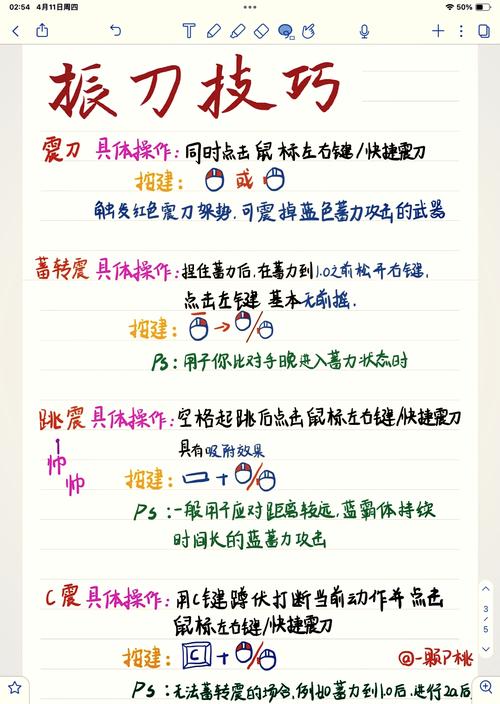 02:54 4月11日周四
50%
振刀技巧
震刀 具体操作:同时点击鼠标左右键/快捷震刀
按建: 或
触发红色震刀架势,可震掉蓝色蓄力攻击的武器
蓄转震 具体操作:捏住蓄力后,在蓄力到1.0之前松开右键,
点击左键 基本无前摇.
按建: → /
Ps:用于你比对手晚进入蓄力状态时
跳震 具体操作:空格起跳后点击鼠标左右键/快捷震刀
帅
帅
具有吸附效果
按建: + /
Ps:一般用于应对距离较远,蓝霸体持续
时间长的蓝蓄力攻击
C震 具体操作:用C键蹲伏打断当前动作并点击
鼠标左右键/快捷震刀
按建: C + /
@一颗P桃
3
/
5
Ps:无法蓄转震的场合,例如蓄力到1.0后,进行2a后